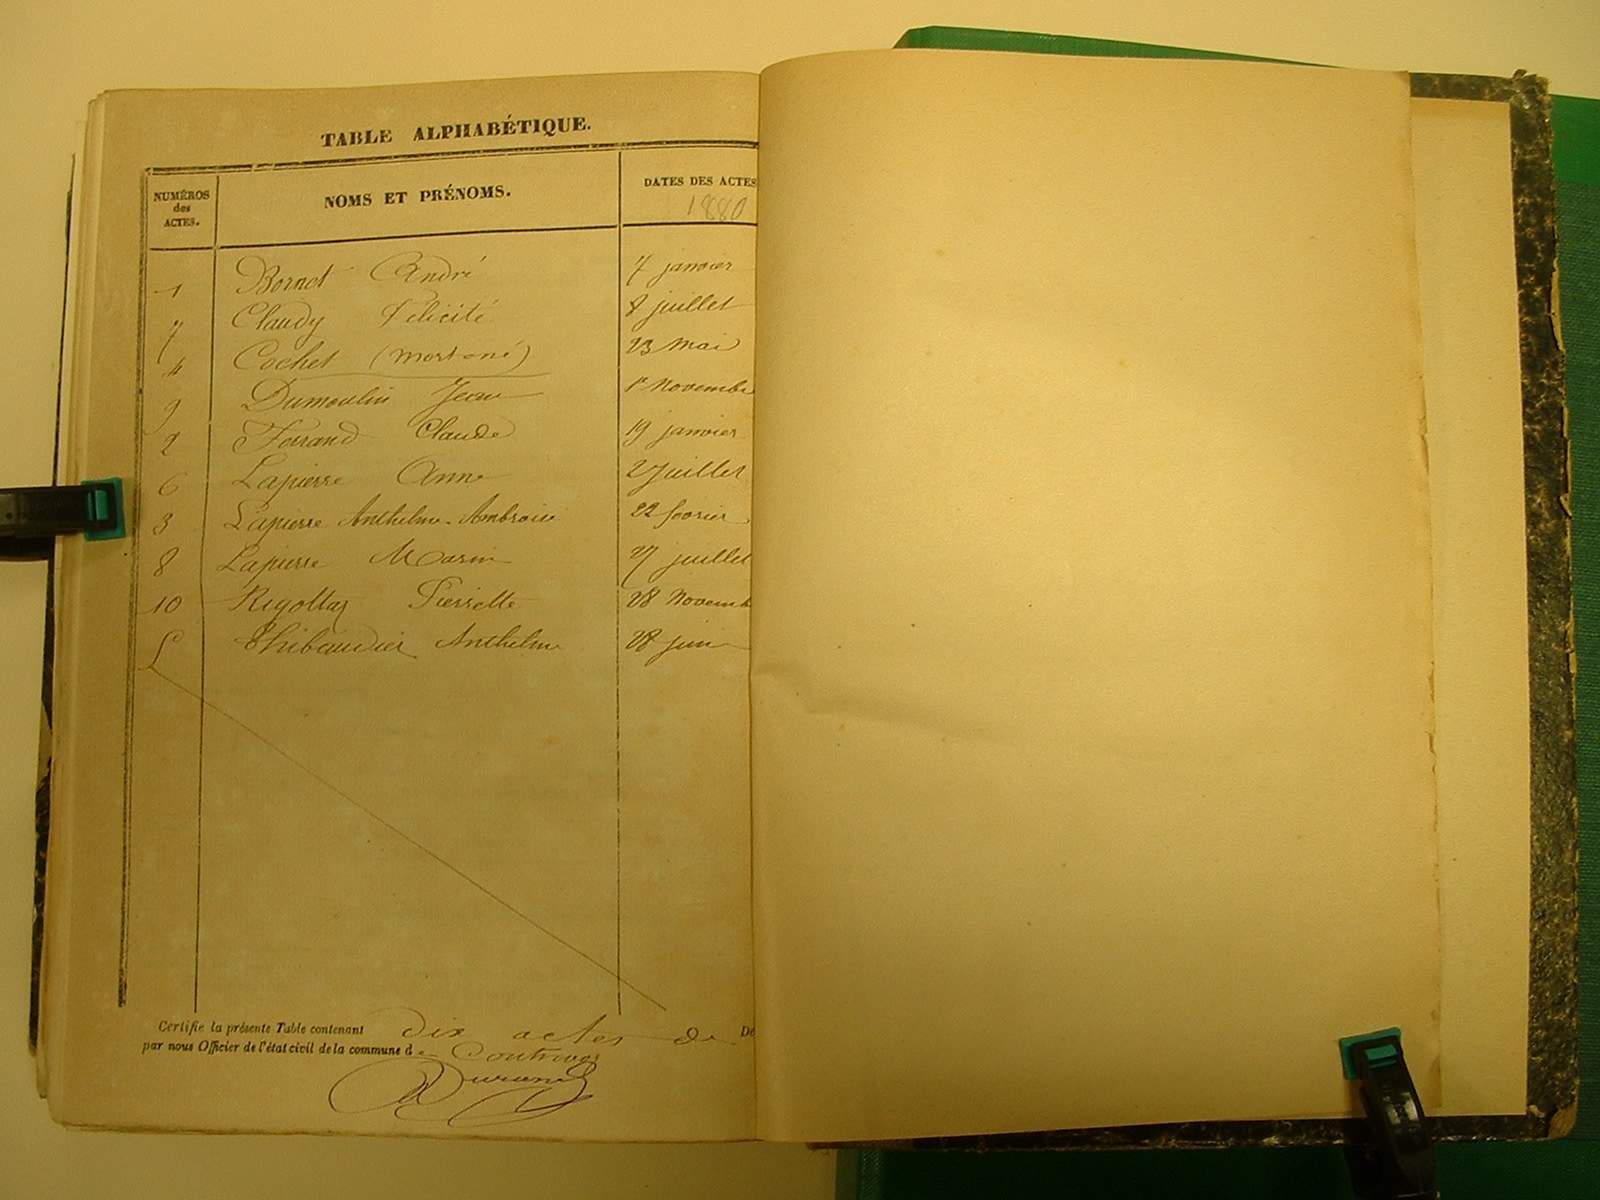 TABLE ALPHABÉTIQUE.
NUMÉROS des ACTES. NOMS ET PRÉNOMS. DATES DES ACTES
1880
1 Bornet André 7 janvier
7 Claudy Félicité 8 juillet
4 Cochet (mort-né) 23 Mai
9 Dumoulin Jean 1r Novembre
2 Ferrand Claude 19 janvier
6 Lapierre Anne 2 juillet
3 Lapierre Anthelme-Ambroise 22 fevrier
8 Lapierre Marin 27 juillet
10 Rigollaz Pierrette 28 Novemb
5 Thibaudier Anthelme 28 juin
Certifie la présente Table contenant dix actes de Dé
par nous Officier de l'état civil de la commune de Contrevoz
Durand